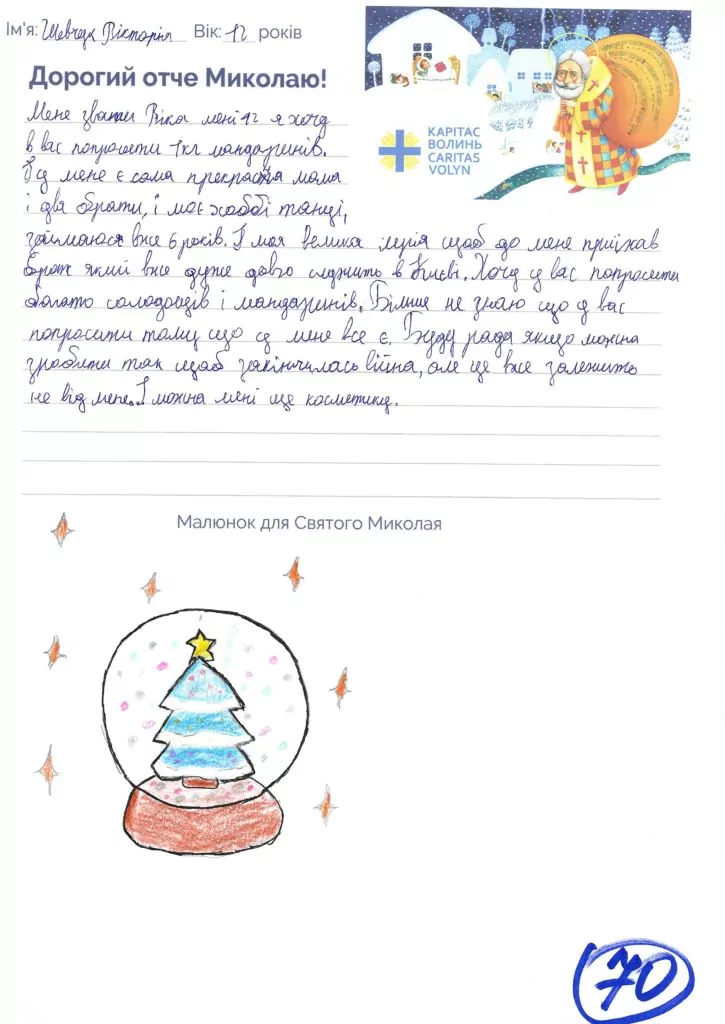 Ім'я: Шевчук Вікторія Вік: 12 років
Дорогий отче Миколаю!
КАРІТАС
ВОЛИНЬ
CARITAS
VOLYN
Мене звати Віка мені 12 я хочу
в вас попросити 1кг мандаринів.
У мене є сама прекрасна мама
і два брати, і моє хоббі танці,
займаюся вже 6 років. І моя велика мрія щоб до мене приїхав
брат який вже дуже довго служить в Києві. Хочу у вас попросити
багато солодощів і мандаринів. Більше не знаю що у вас
попросити тому що у мене все є. Буду рада якщо можна
зробити так щоб закінчилась війна, але це вже залежить
не від мене. І можна мені ще косметику.
Малюнок для Святого Миколая
70